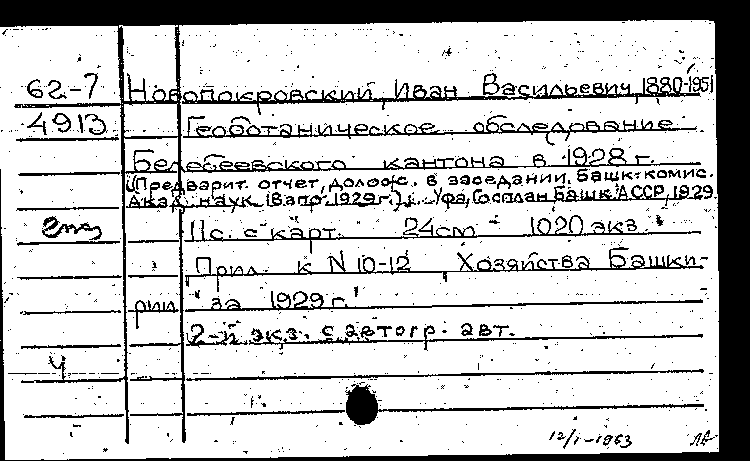 62-7 Новопокровский, Иван Васильевич, 1880-1951
4913 Геоботаническое обследование
Белебеевского кантона в 1928 г.
(Предварит. отчет, долож. в заседании. Башк. комис.
Акад. наук 18 апр. 1929 г.). Уфа, Госплан Башк. АССР, 1929.
11 с. с карт. 24 cm - 1020 экз.
Прил. к N 10-12 "Хозяйства Башки-
рии" за 1929 г.
2-й экз. с автогр. авт.
Ч
12/I-1963